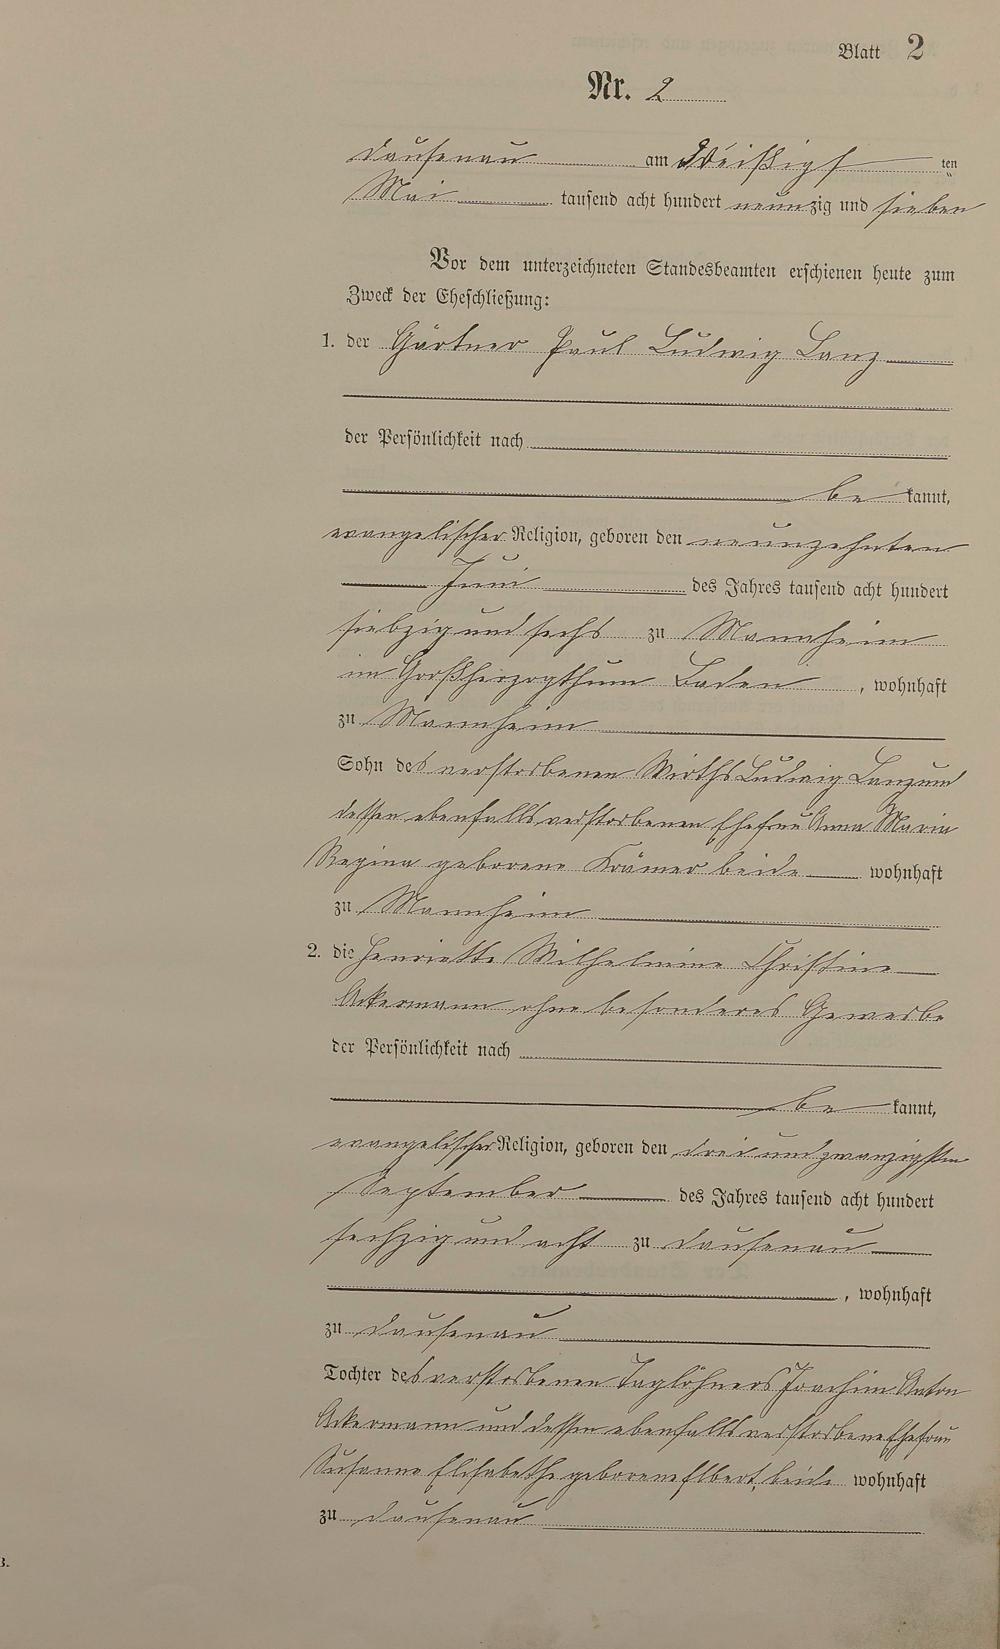 Blatt 2
Nr. 2
Dausenau am dreißigs ten
Mai tausend acht hundert neunzig und sieben
Vor dem unterzeichneten Standesbeamten erschienen heute zum
Zweck der Eheschließung:
1. der Gärtner Paul Ludwig Lanz
der Persönlichkeit nach
be kannt,
evangelischer Religion, geboren den neunzehnten
Juni des Jahres tausend acht hundert
siebzig und sechs zu Mannheim
im Großherzogthum Baden, wohnhaft
zu Mannheim
Sohn des verstorbenen Wirths Ludwig Lanz und
dessen ebenfalls verstorbenen Ehefrau Anna Maria
Regina geborene Krämer beide wohnhaft
zu Mannheim
2. die Henriette Wilhelmine Christine
Ackermann ohne besonderes Gewerbe
der Persönlichkeit nach
be kannt,
evangelischer Religion, geboren den drei und zwanzigsten
September des Jahres tausend acht hundert
sechzig und acht zu Dausenau
, wohnhaft
zu Dausenau
Tochter des verstorbenen Taglöhners Joachim Anton
Ackermann und dessen ebenfalls verstorbene Ehefrau
Susanne Elisabethe geborene Elbert, beide wohnhaft
zu Dausenau